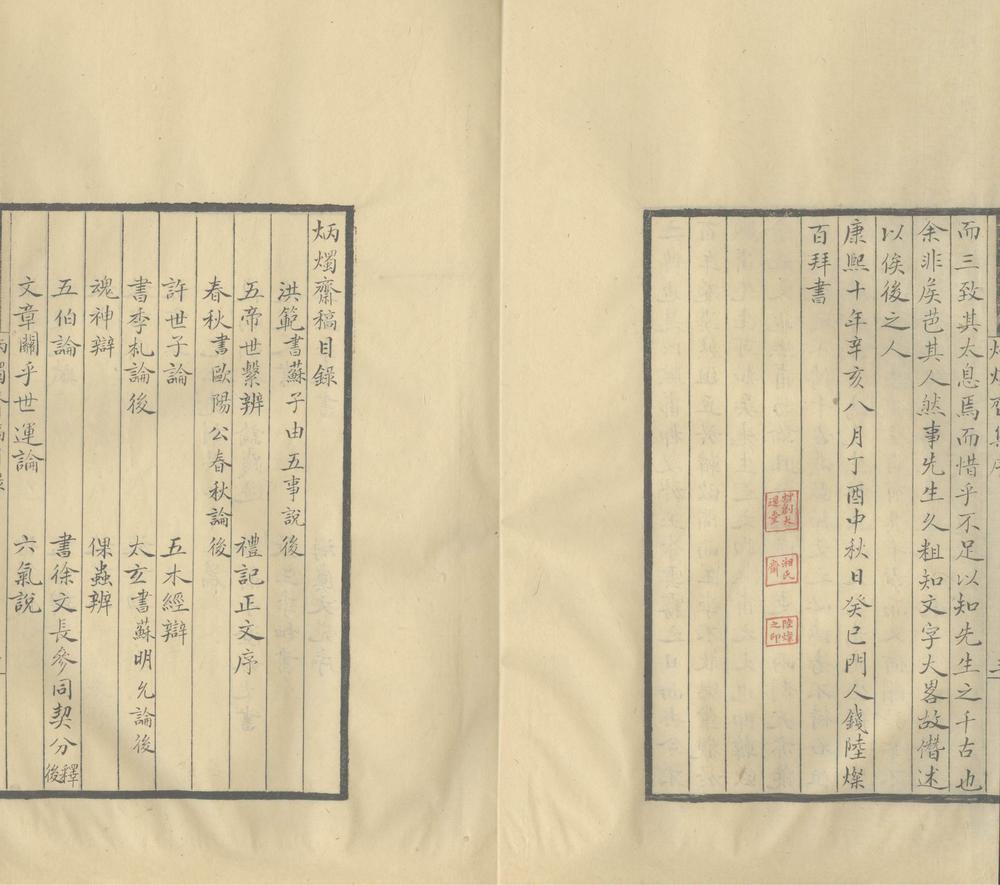 而三致其太息焉而惜乎不足以知先生之千古也
余非矦芭其人然事先生久粗知文字大畧故僭述
以俟後之人
康熙十年辛亥八月丁酉中秋日癸巳門人錢陸燦
百拜書
湘氏
齋
陸燦
之印
炳燭齋稿目錄
洪範書蘇子由五事說後
五帝世繫辨 禮記正文序
春秋書歐陽公春秋論後
許世子論 五木經辯
書季札論後 太玄書蘇明允論後
魂神辯 倮蟲辨
五伯論 書徐文長參同契分釋後
文章關乎世運論 六氣說